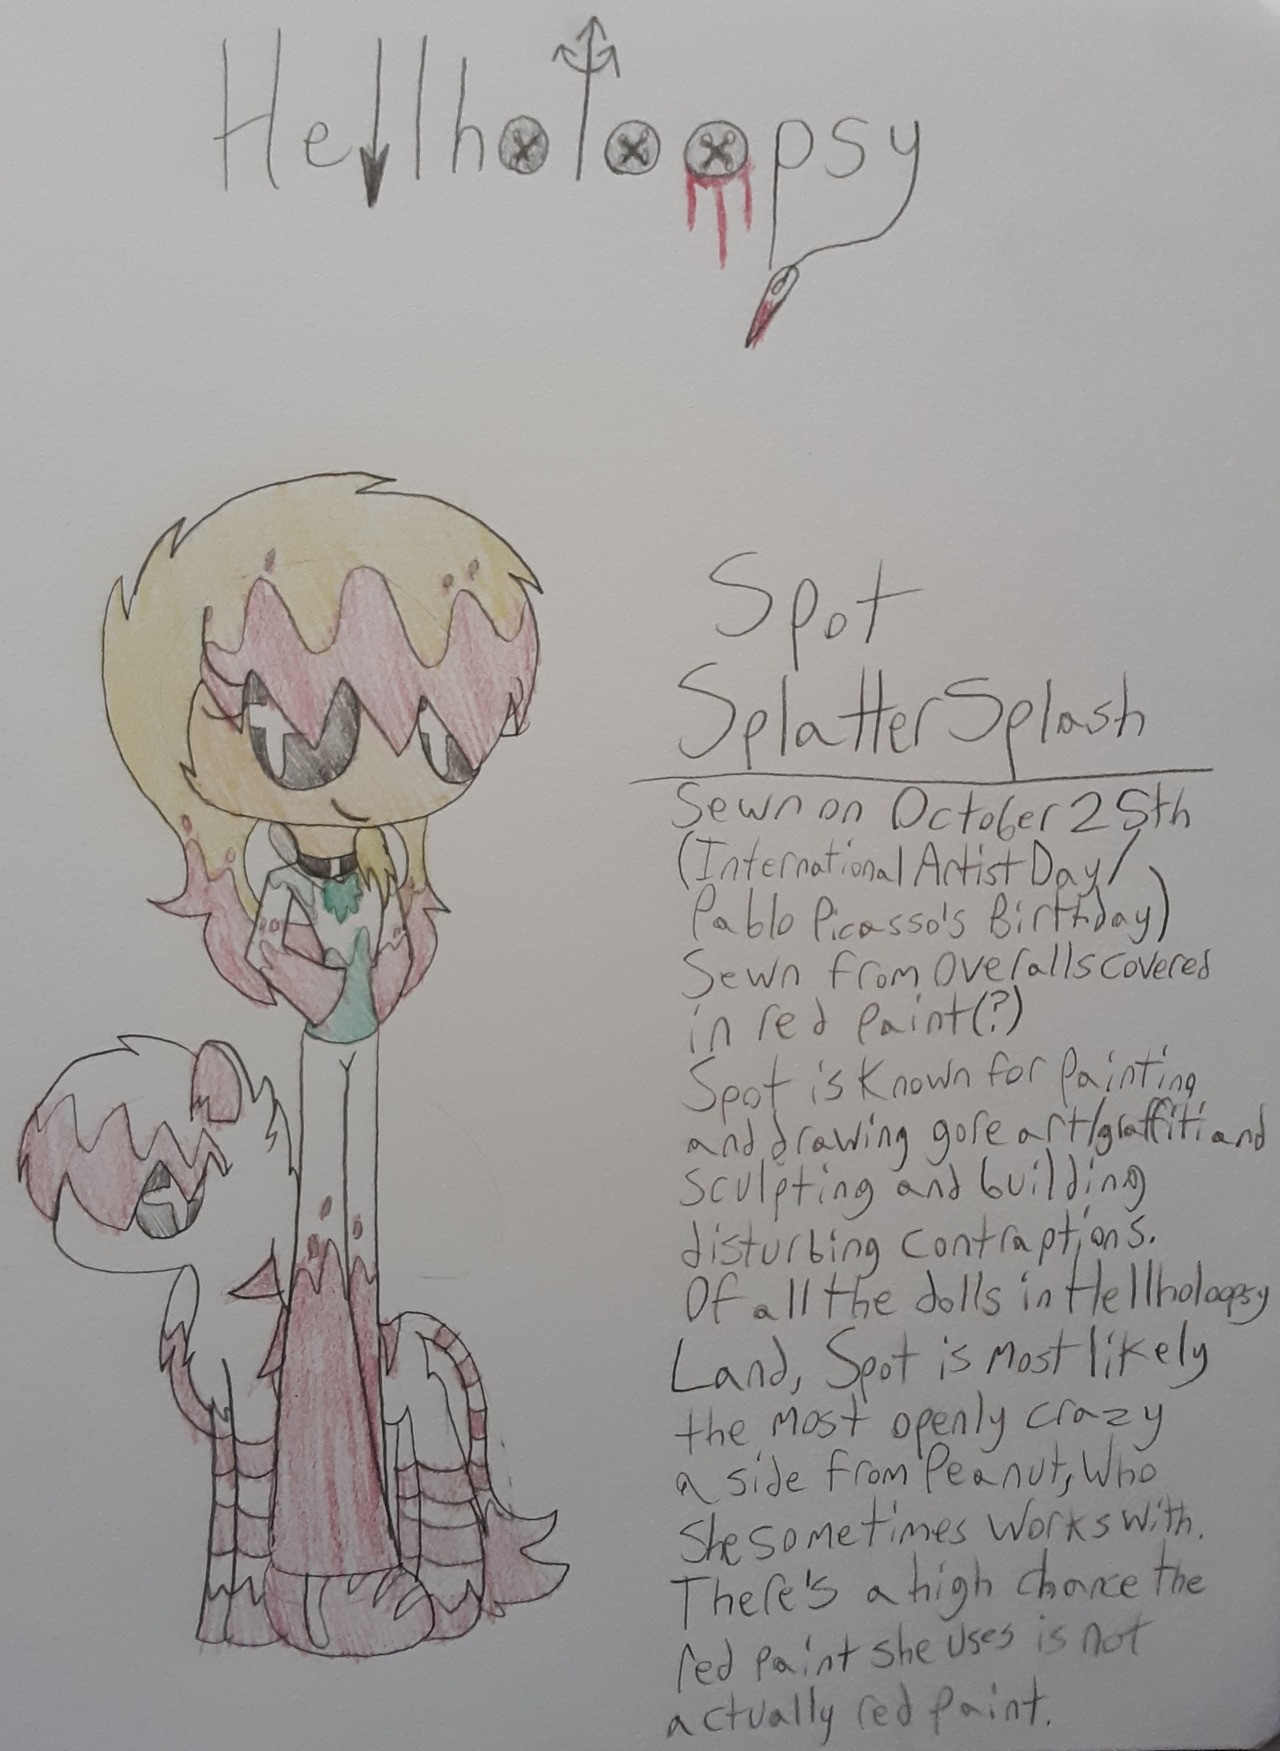 Hellholoopsy
Spot
SplatterSplash
Sewn on October 25th
(International Artist Day/
Pablo Picasso's Birthday)
Sewn from overalls covered
in red paint(?)
Spot is known for painting
and drawing gore art/graffiti and
sculpting and building
disturbing contraptions.
Of all the dolls in Hellholoopsy
Land, Spot is most likely
the most openly crazy
a side from Peanut, who
she sometimes works with.
There's a high chance the
red paint she uses is not
actually red paint.